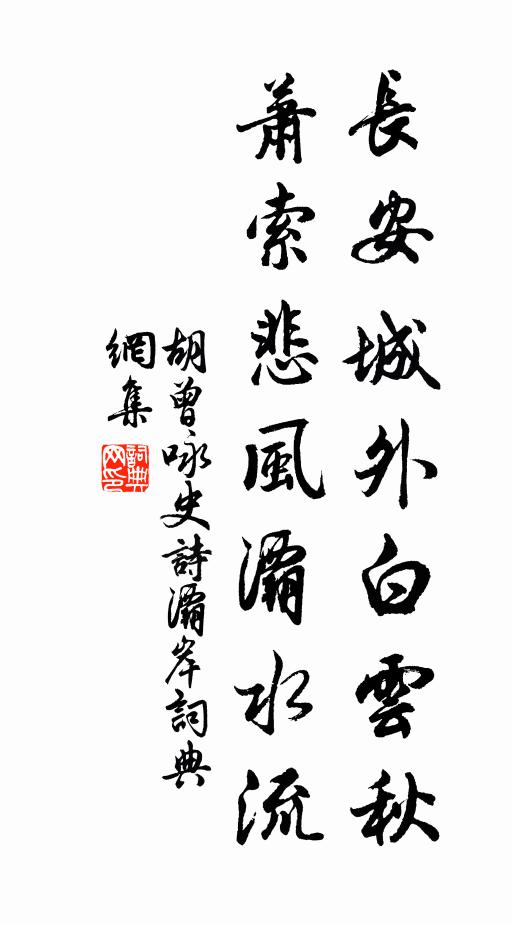 長安城外白雲秋
蕭索悲風灞水流
胡曾咏史詩灞岸詞典
網集
詞典网印